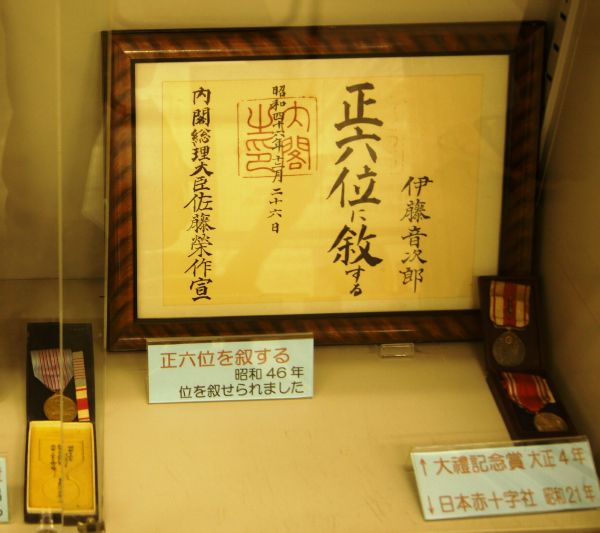 伊藤音次郎
正六位に敘する
昭和四十六年十二月二十六日
内閣之印
内閣総理大臣佐藤榮作宣
正六位を叙する
昭和46年
位を叙せられました
↑大禮記念賞 大正4年
↓日本赤十字社 昭和21年